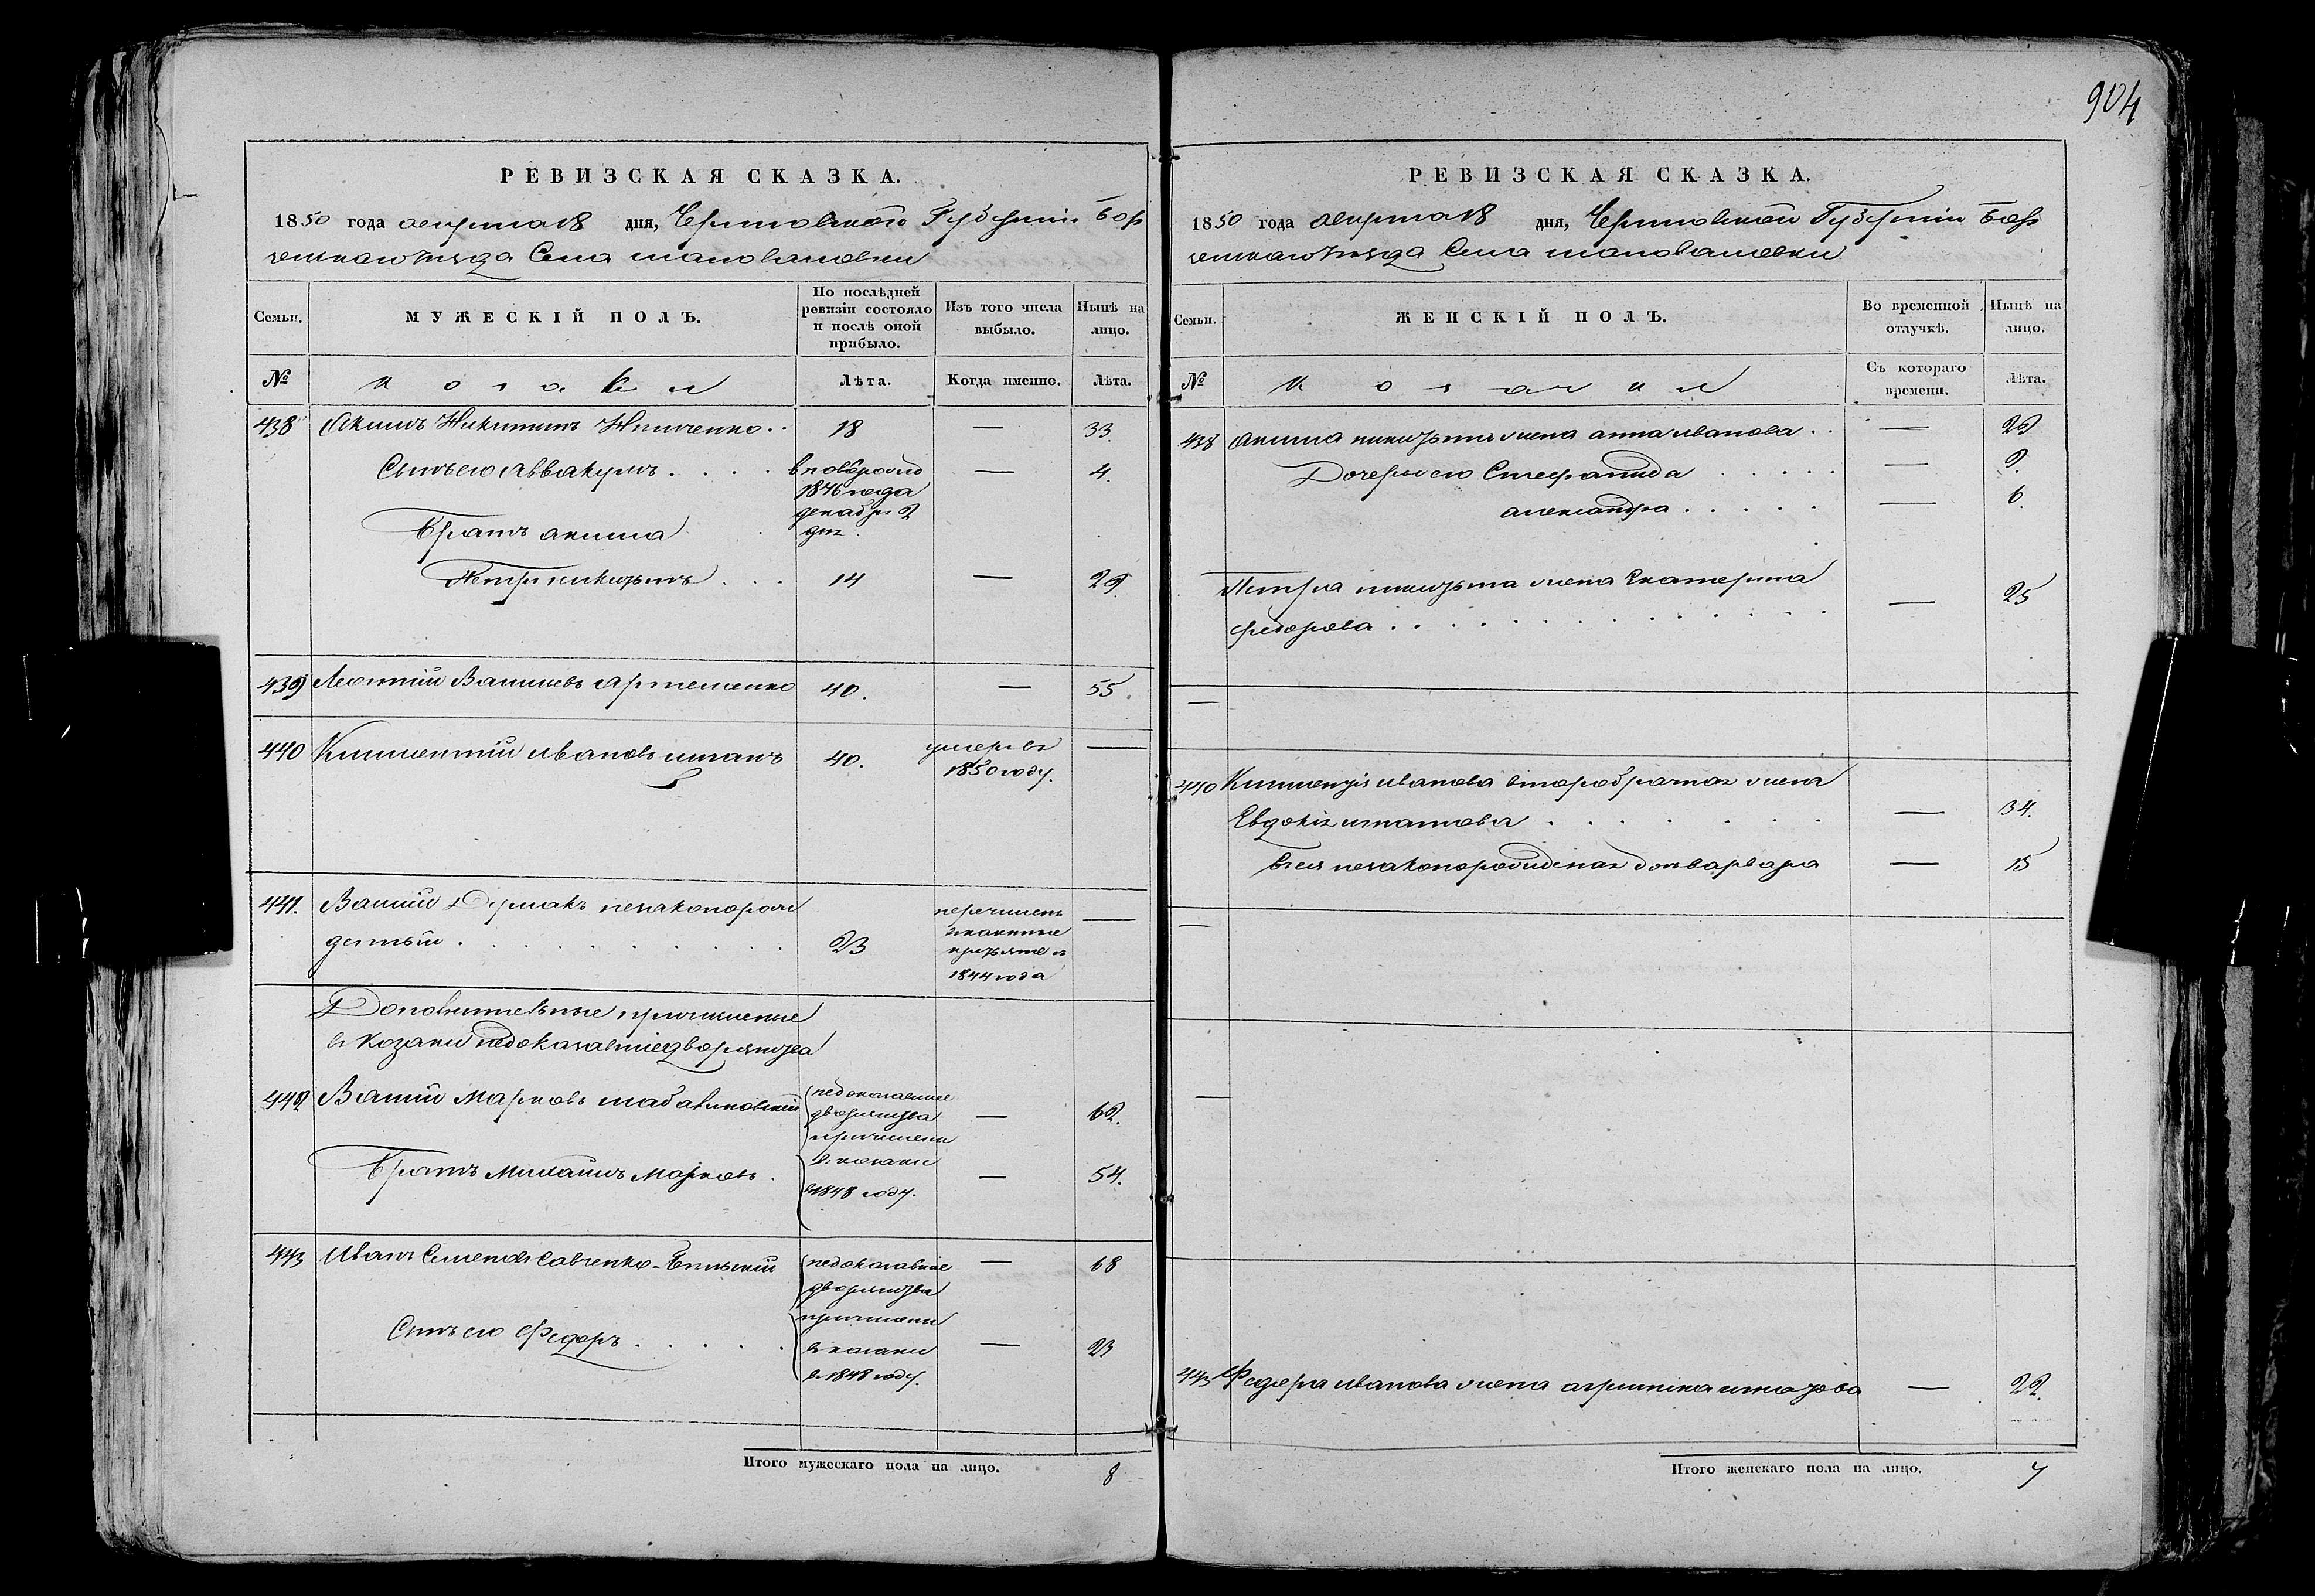 904
РЕВИЗСКАЯ СКАЗКА.
1850 года августа 18 дня, Черниговской Губернии Бор
зенскаго уезда Села шаповаловки
Семьи.
МУЖЕСКІЙ ПОЛЪ.
По послѣдней
ревизіи состояло
и послѣ оной
прибыло.
Изъ того числа
выбыло.
Нынѣ на
лицо.
№
козаки
Лѣта.
Когда именно.
Лѣта.
438 Акимъ Никитинъ 18 — 33.
Сынъ его Аввакумъ — 4.
1846 года
декабря 2
дня
Братъ акима
Петръ никитинъ 14 — 29.
439 Леонтій Васильевъ 40. — 55.
440 Климентій ивановъ 40. умеръ въ —
1850 году.
441. Василій Думакъ незаконорож
денный 23
перечисленъ —
1844 года
Дополнительные причисленые
в Козаки недоказавшіе дворянства
442 Василій Марковъ — 62.
недоказавшіе
дворянства
причислены
в козаки
в 1848 году.
Братъ Михаилъ Марковъ. — 54.
443 Иванъ Семеновъ Савченко-Бѣльскій — 68
недоказавшіе
дворянства
причислены
в козаки
в 1848 году.
Сынъ его Федоръ — 23
Итого мужескаго пола на лицо. 8
РЕВИЗСКАЯ СКАЗКА.
1850 года августа 18 дня, Черниговской Губерніи Бор
зенскаго уезда Села шаповаловки
Семьи.
ЖЕНСКІЙ ПОЛЪ.
Во временной
отлучкѣ.
Нынѣ на
лицо.
№
козачки
Съ котораго
времени.
Лѣта.
438 акима никитина жена анна иванова —
Дочери его Степанида — 9.
александра — 6.
Петра никитина жена Екатерина
федорова — 25
—
440 Климентія иванова второбрачная жена
Евдокія игнатова — 34.
Ея незаконорожденая дочь варвара — 15
—
—
443 Федора иванова жена — 22.
Итого женскаго пола на лицо. 7